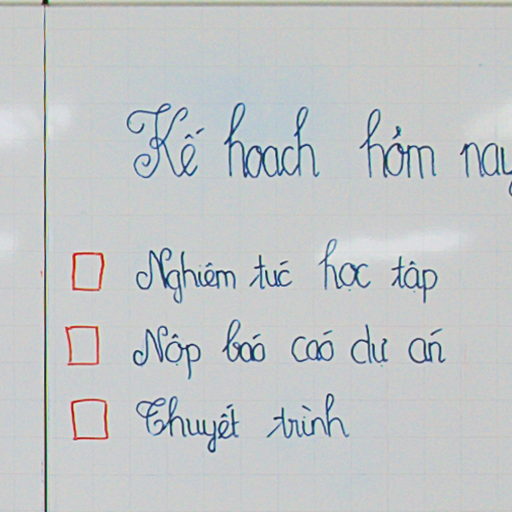 Kế hoach hỏm nay
Nghiêm túc học tập
Nộp baó caó dự án
Thuyết trình